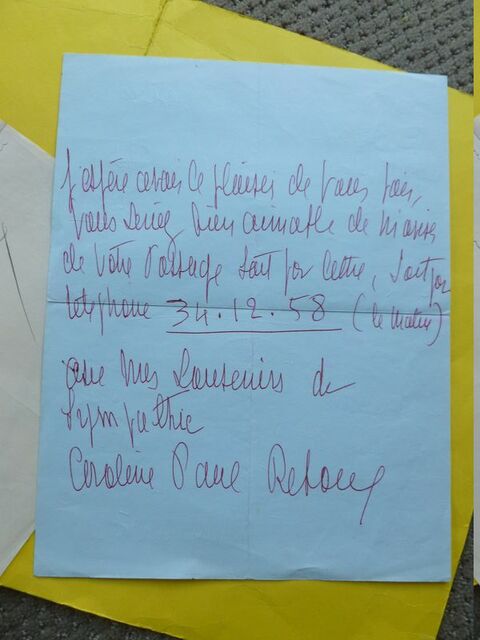 J'espère avoir le plaisir de vous voir,
vous seriez bien aimable de m'aviser
de votre passage soit par lettre, soit par
téléphone 34.12.58 (le matin)
avec mes souvenirs de
sympathie
Caroline Paul